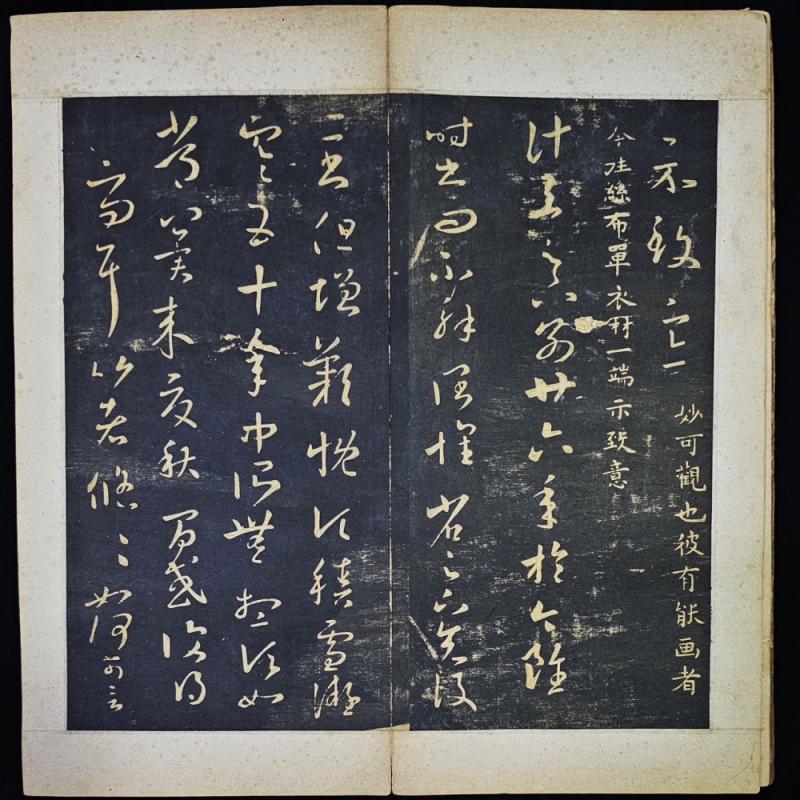 示致意
妙可觀也彼有能画者
今往絲布單衣財一端示致意
計与足下別廿六年於今雖
時書問不解闊懷省足下先後
二書但增歎慨頃積雪凝
寒五十年中所無想頃如
常冀來夏秋間或復得
足下問耳比者悠〻如何可言